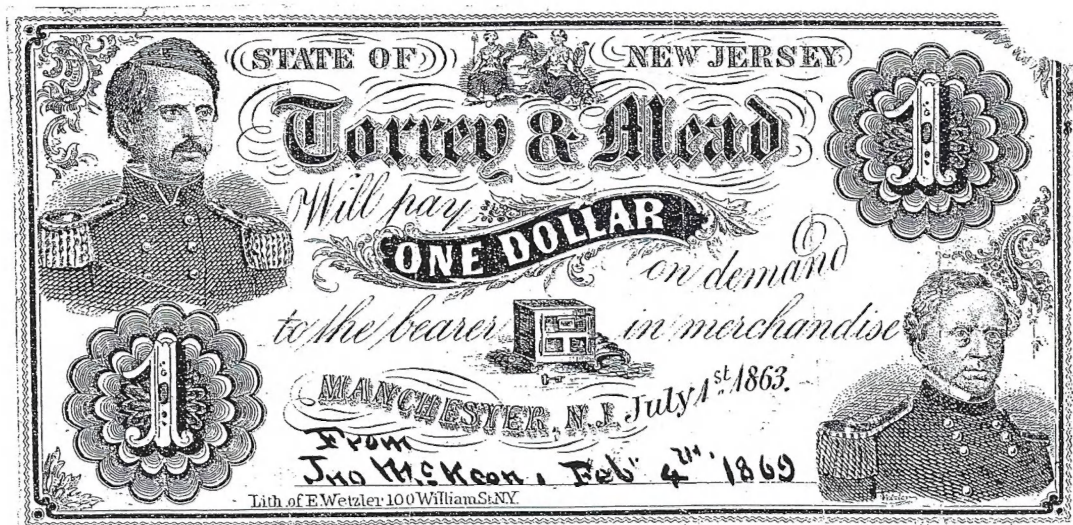 STATE OF NEW JERSEY
Torrey & Mead
1
Will pay
ONE DOLLAR
on demand
to the bearer in merchandise
MANCHESTER, N.J. July 1st 1863.
1
From
Jno McKeon, Feb 4TH, 1869
Lith. of E. Wetzler 100 William St. N.Y.